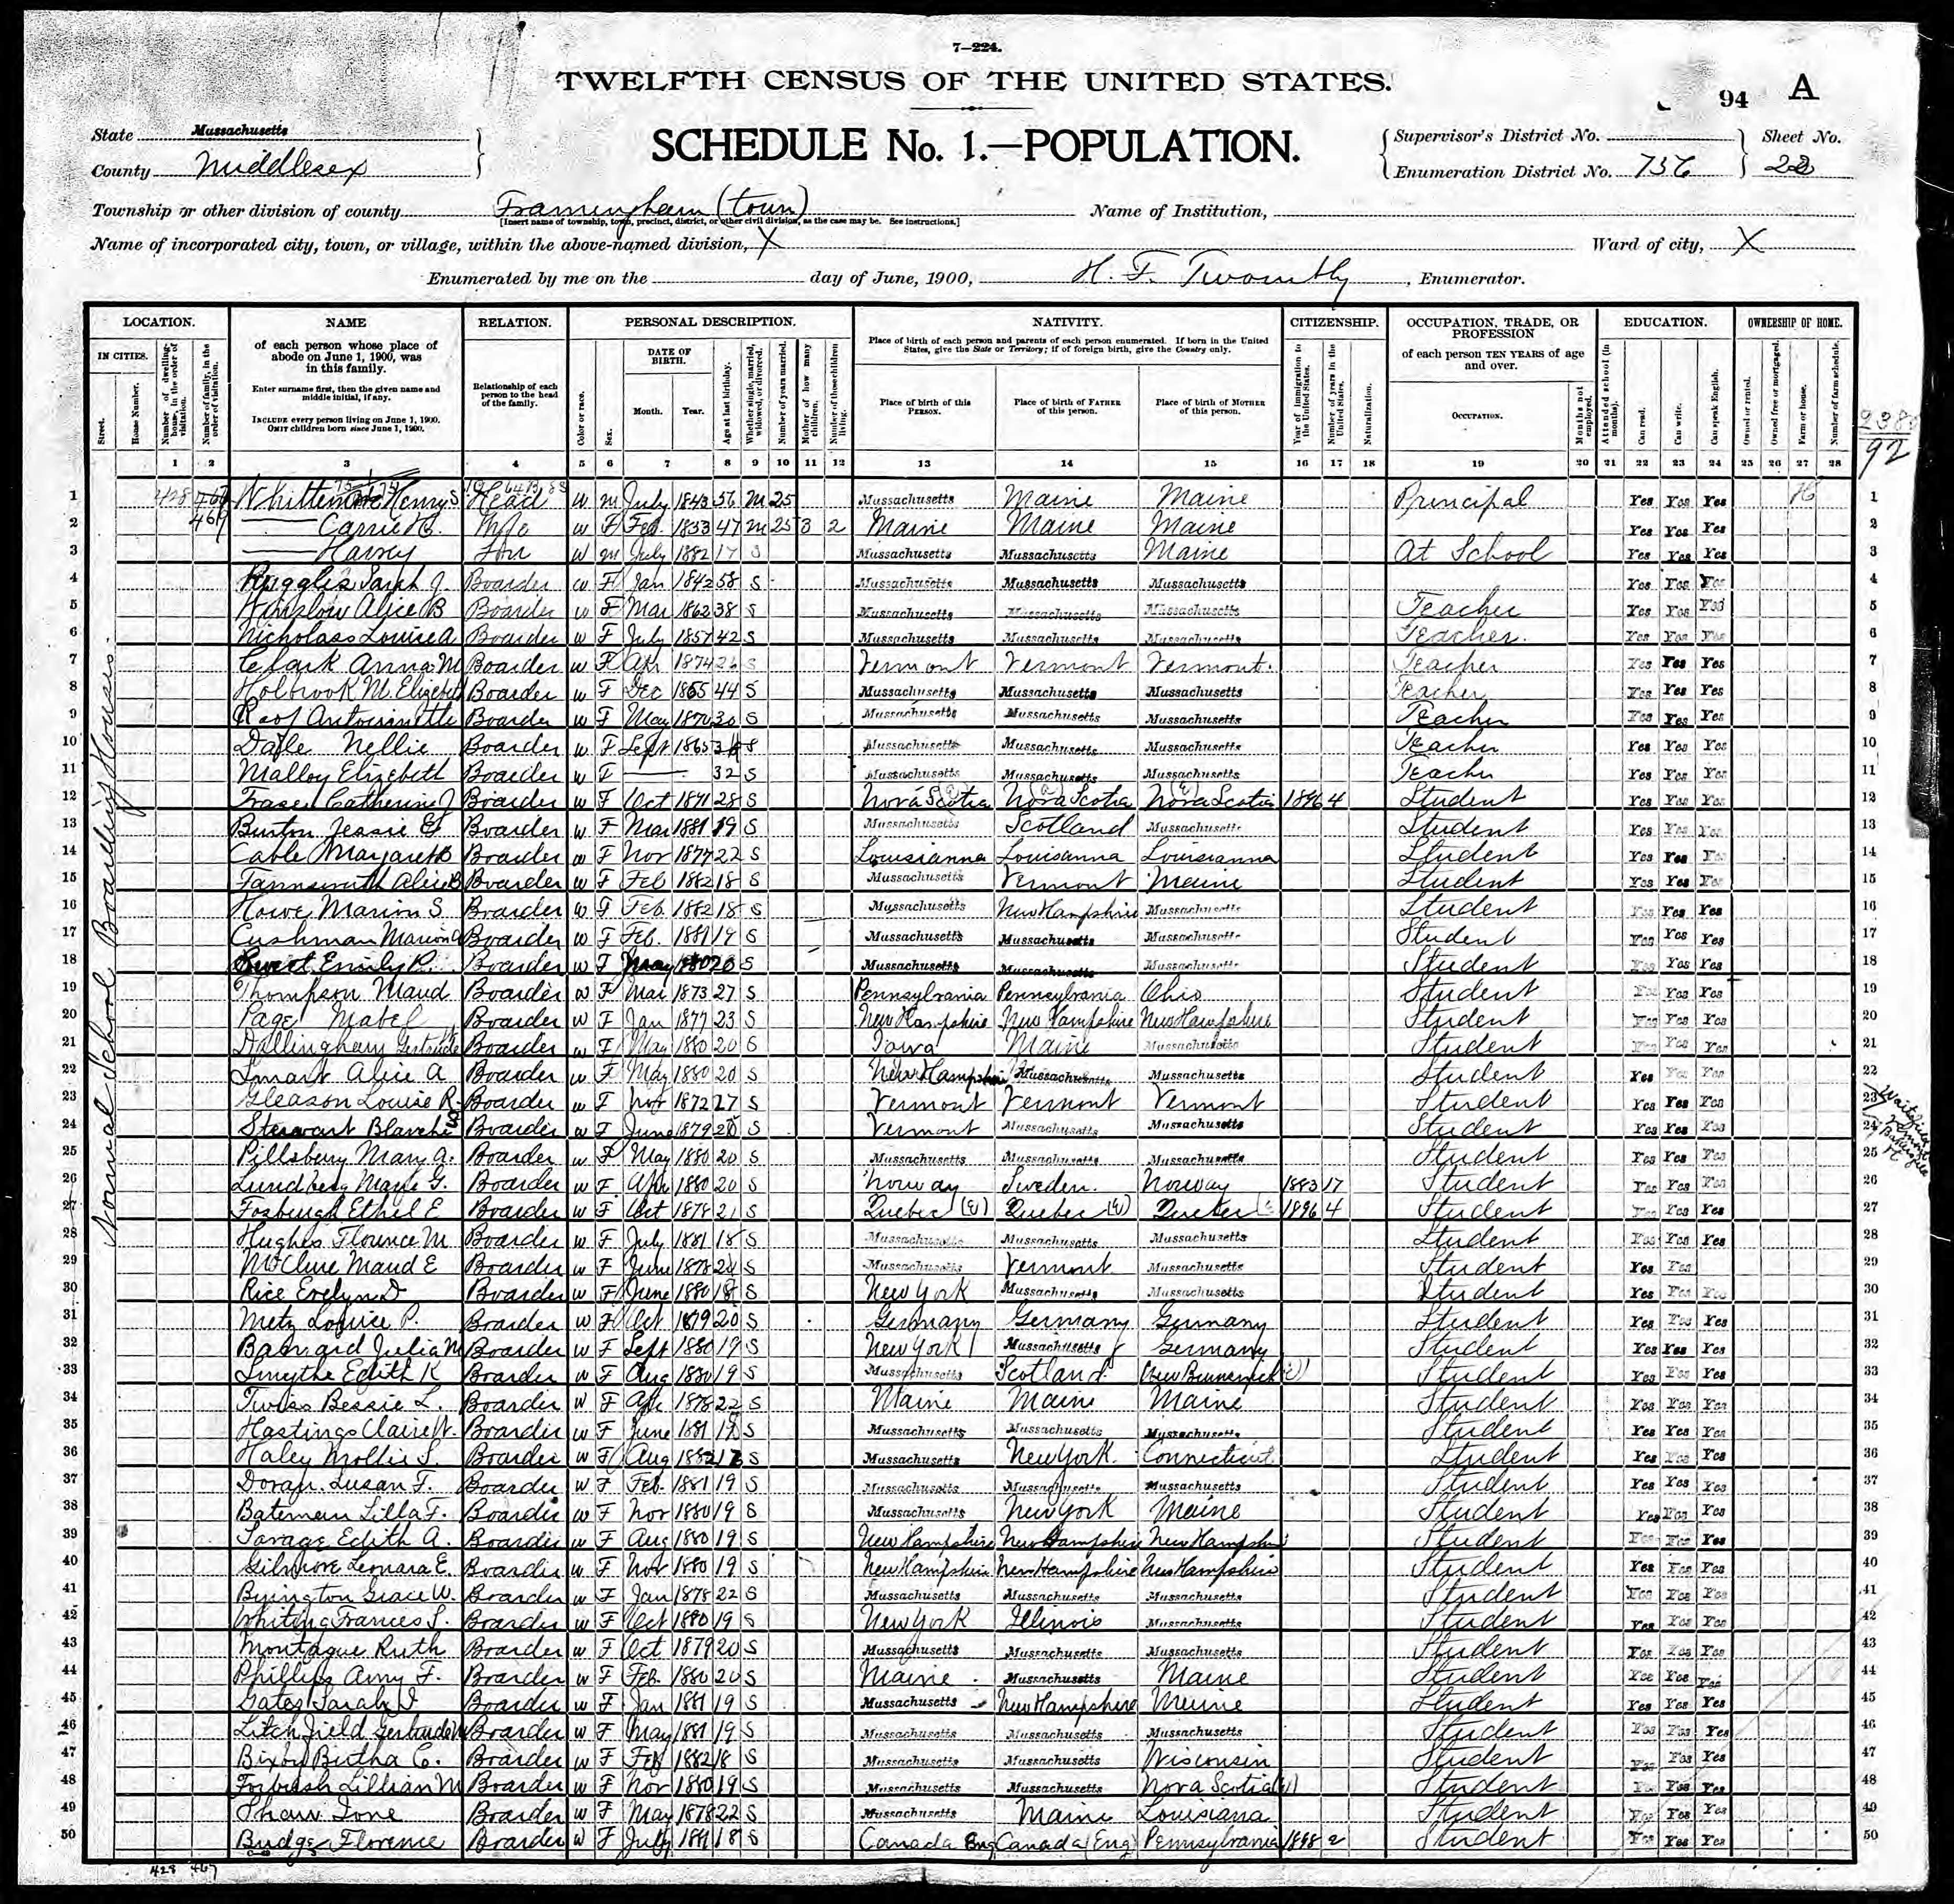 7—224.
TWELFTH CENSUS OF THE UNITED STATES.
94 A
State Massachusetts
County Middlesex
SCHEDULE No. 1.—POPULATION.
Supervisor's District No.
Enumeration District No. 736
Sheet No.
22
Township or other division of county Framingham (town)
[Insert name of township, town, precinct, district, or other civil division, as the case may be. See instructions.]
Name of Institution,
Name of incorporated city, town, or village, within the above-named division, X
Ward of city, X
Enumerated by me on the day of June, 1900, H. F. Twombly, Enumerator.
LOCATION. NAME RELATION. PERSONAL DESCRIPTION. NATIVITY. CITIZENSHIP. OCCUPATION, TRADE, OR PROFESSION EDUCATION. OWNERSHIP OF HOME.
IN CITIES.
Street.
House Number.
Number of dwelling-house, in the order of visitation.
Number of family, in the order of visitation.
of each person whose place of abode on June 1, 1900, was in this family.
Enter surname first, then the given name and middle initial, if any.
INCLUDE every person living on June 1, 1900.
OMIT children born since June 1, 1900.
Relationship of each person to the head of the family.
Color or race.
Sex.
DATE OF BIRTH.
Month. Year.
Age at last birthday.
Whether single, married, widowed, or divorced.
Number of years married.
Mother of how many children.
Number of these children living.
Place of birth of each person and parents of each person enumerated. If born in the United States, give the State or Territory; if of foreign birth, give the Country only.
Place of birth of this PERSON.
Place of birth of FATHER of this person.
Place of birth of MOTHER of this person.
Year of immigration to the United States.
Number of years in the United States.
Naturalization.
of each person TEN YEARS of age and over.
OCCUPATION.
Months not employed.
Attended school (in months).
Can read.
Can write.
Can speak English.
Owned or rented.
Owned free or mortgaged.
Farm or house.
Number of farm schedule.
1 2 3 4 5 6 7 8 9 10 11 12 13 14 15 16 17 18 19 20 21 22 23 24 25 26 27 28
92
Normal School Boarding Houses.
1 428 Whittemore Henry S Head W M July 1843 56 M 25 Massachusetts Maine Maine Principal Yes Yes Yes H 1
2 467 Carrie W F Feb 1853 47 M 25 3 2 Maine Maine Maine Yes Yes Yes 2
3 Harvey Son W M July 1882 17 S Massachusetts Massachusetts Maine At School Yes Yes Yes 3
4 Ruggles Sarah J. Boarder W F Jan 1842 58 S Massachusetts Massachusetts Massachusetts Yes Yes Yes 4
5 Winslow Alice B Boarder W F Mar 1862 38 S Massachusetts Massachusetts Massachusetts Teacher Yes Yes Yes 5
6 Nicholass Louise A Boarder W F July 1857 42 S Massachusetts Massachusetts Massachusetts Teacher. Yes Yes Yes 6
7 Clark Anna M Boarder W F Apr 1874 26 S Vermont Vermont Vermont. Teacher Yes Yes Yes 7
8 Holbrook M. Elizabeth Boarder W F Dec 1855 44 S Massachusetts Massachusetts Massachusetts Teacher Yes Yes Yes 8
9 Roof Antoinette Boarder W F May 1870 30 S Massachusetts Massachusetts Massachusetts Teacher Yes Yes Yes 9
10 Dale Nellie Boarder W F Sept 1865 34 S Massachusetts Massachusetts Massachusetts Teacher Yes Yes Yes 10
11 Malloy Elizabeth Boarder W F 32 S Massachusetts Massachusetts Massachusetts Teacher Yes Yes Yes 11
12 Fraser Catherine J Boarder W F Oct 1871 28 S Nova Scotia Nova Scotia Nova Scotia 1896 4 Student Yes Yes Yes 12
13 Burton Jessie Boarder W F Mar 1881 19 S Massachusetts Scotland Massachusetts Student Yes Yes Yes 13
14 Cable Margaret B Boarder W F Nov 1877 22 S Louisianna Louisianna Louisianna Student Yes Yes Yes 14
15 Farnsworth Alice B Boarder W F Feb 1882 18 S Massachusetts Vermont Maine Student Yes Yes Yes 15
16 Howe Marion S Boarder W F Feb. 1882 18 S Massachusetts New Hampshire Massachusetts Student Yes Yes Yes 16
17 Cushman Marion Boarder W F Feb. 1881 19 S Massachusetts Massachusetts Massachusetts Student Yes Yes Yes 17
18 Sweet Emily R. Boarder W F May 1880 20 S Massachusetts Massachusetts Massachusetts Student Yes Yes Yes 18
19 Thompson Maud Boarder W F Mar 1873 27 S Pennsylvania Pennsylvania Ohio Student Yes Yes Yes 19
20 Page Mabel Boarder W F Jan 1877 23 S New Hampshire New Hampshire New Hampshire Student Yes Yes Yes 20
21 Dallingham Gertrude Boarder W F May 1880 20 S Iowa Maine Massachusetts Student Yes Yes Yes 21
22 Smart Alice A Boarder W F May 1880 20 S New Hampshire Massachusetts Massachusetts Student Yes Yes Yes 22
23 Gleason Louise R. Boarder W F Nov 1872 27 S Vermont Vermont Vermont Student Yes Yes Yes 23
24 Stewart Blanche S Boarder W F June 1879 20 S Vermont Massachusetts Massachusetts Student Yes Yes Yes 24
25 Pillsbury Mary A. Boarder W F May 1880 20 S Massachusetts Massachusetts Massachusetts Student Yes Yes Yes 25
26 Lundberg Marie G. Boarder W F Apr 1880 20 S Norway Sweden. Norway 1883 17 Student Yes Yes Yes 26
27 Fosburgh Ethel E Boarder W F Oct 1878 21 S Quebec (E) Quebec (E) Quebec (E) 1896 4 Student Yes Yes Yes 27
28 Hughes Florence M Boarder W F July 1881 18 S Massachusetts Massachusetts Massachusetts Student Yes Yes Yes 28
29 McClure Maud E Boarder W F June 1878 21 S Massachusetts Vermont Massachusetts Student Yes Yes 29
30 Rice Evelyn D Boarder W F June 1880 S New York Massachusetts Massachusetts Student Yes Yes Yes 30
31 Metz Louise P. Boarder W F Oct 1879 20 S Germany Germany Germany Student Yes Yes Yes 31
32 Barnard Julia M Boarder W F Sept 1880 19 S New York Massachusetts Germany Student Yes Yes Yes 32
33 Smythe Edith K Boarder W F Aug 1880 19 S Massachusetts Scotland New Brunswick (E) Student Yes Yes Yes 33
34 Twiss Bessie L. Boarder W F Apr 1878 22 S Maine Maine Maine Student Yes Yes Yes 34
35 Hastings Claire W. Boarder W F June 1881 S Massachusetts Massachusetts Massachusetts Student Yes Yes Yes 35
36 Haley Mollie S. Boarder W F Aug 1882 17 S Massachusetts New York. Connecticut. Student Yes Yes Yes 36
37 Doran Susan F. Boarder W F Feb. 1881 19 S Massachusetts Massachusetts Massachusetts Student Yes Yes Yes 37
38 Bateman Lilla F. Boarder W F Nov 1880 19 S Massachusetts New York Maine Student Yes Yes Yes 38
39 Savage Edith A. Boarder W F Aug 1880 19 S New Hampshire New Hampshire New Hampshire Student Yes Yes Yes 39
40 Gilmore Leonara E. Boarder W F Nov 1880 19 S New Hampshire New Hampshire New Hampshire Student Yes Yes Yes 40
41 Byington Grace W. Boarder W F Jan 1878 22 S Massachusetts Massachusetts Massachusetts Student Yes Yes Yes 41
42 Whiting Frances S. Boarder W F Oct 1880 19 S New York Illinois Massachusetts Student Yes Yes Yes 42
43 Montague Ruth Boarder W F Oct 1879 20 S Massachusetts Massachusetts Massachusetts Student Yes Yes Yes 43
44 Phillips Amy F. Boarder W F Feb. 1880 20 S Maine Massachusetts Maine Student Yes Yes Yes 44
45 Gates Sarah I Boarder W F Jan 1881 19 S Massachusetts New Hampshire Maine Student Yes Yes Yes 45
46 Litchfield Gertrude Boarder W F May 1881 19 S Massachusetts Massachusetts Massachusetts Student Yes Yes Yes 46
47 Bixby Birtha C. Boarder W F Feb 1882 18 S Massachusetts Massachusetts Wisconsin Student Yes Yes Yes 47
48 Forbush Lillian M Boarder W F Nov 1880 19 S Massachusetts Massachusetts Nova Scotia (E) Student Yes Yes Yes 48
49 Shaw Ione Boarder W F May 1878 22 S Massachusetts Maine Louisiana Student Yes Yes Yes 49
50 Budge Florence Boarder W F July 1881 18 S Canada Eng Canada (Eng) Pennsylvania 1898 2 Student Yes Yes Yes 50
428 467